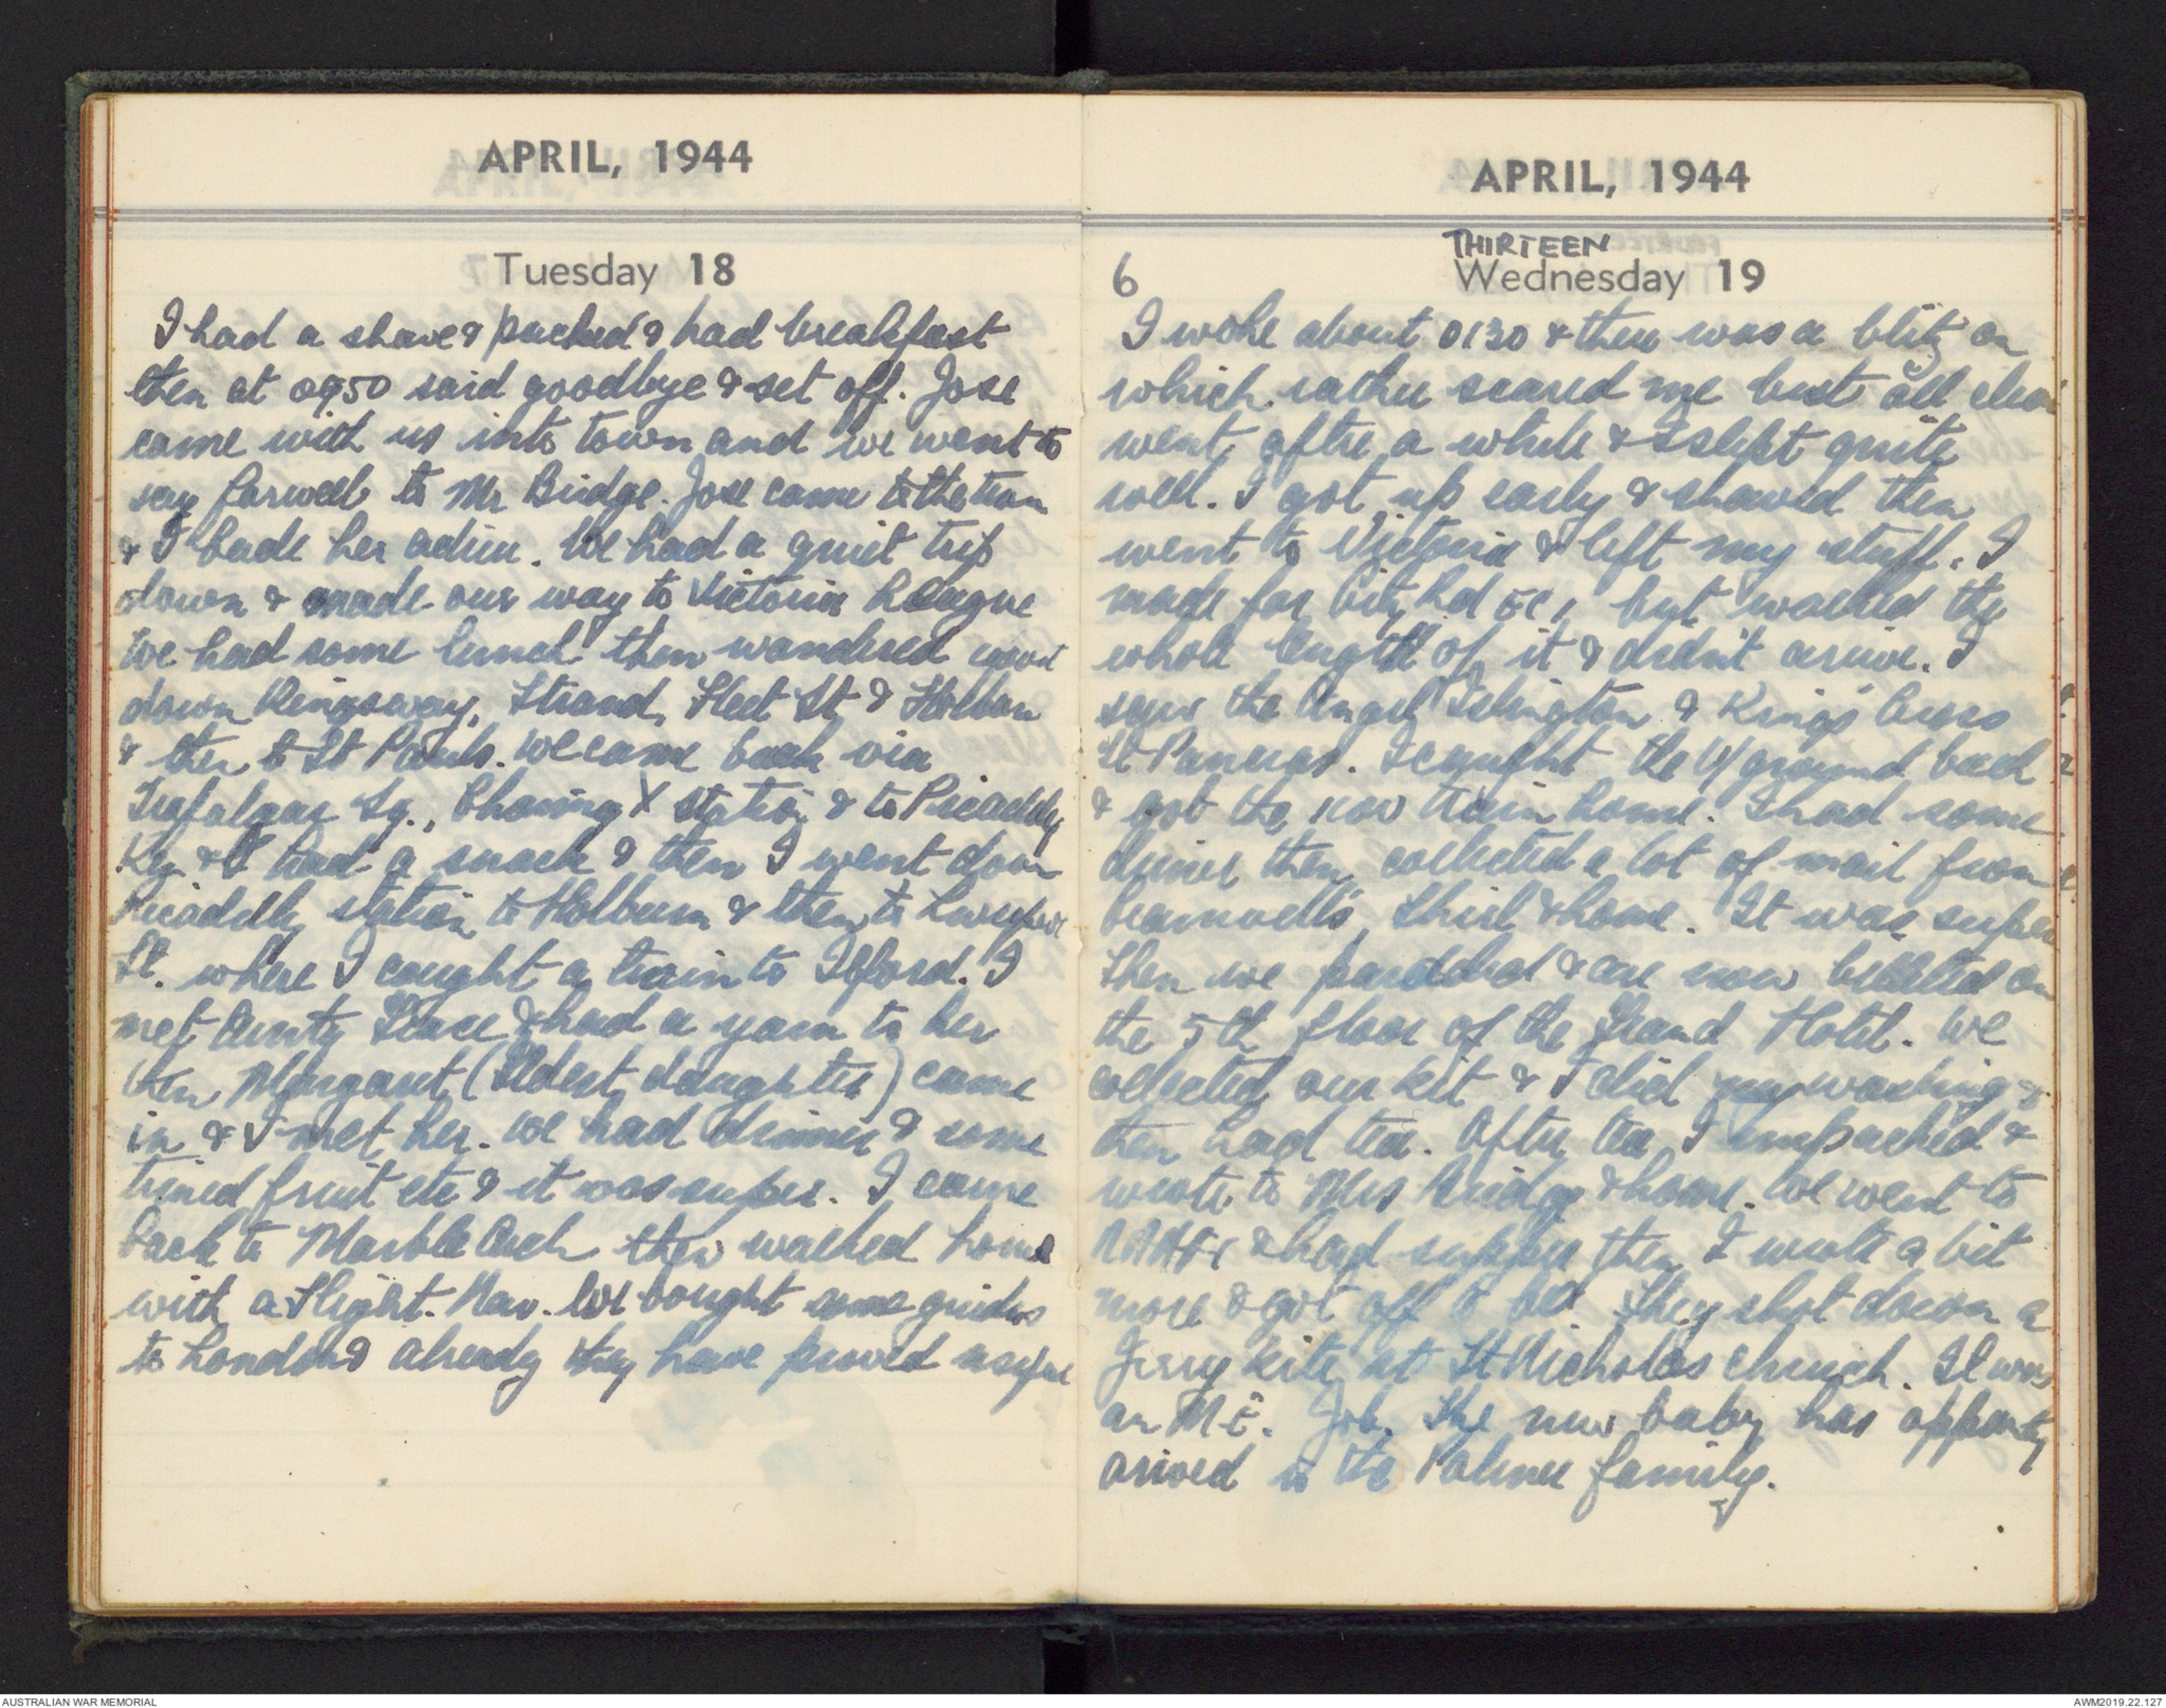 APRIL, 1944
Tuesday 18
I had a shave & packed & had breakfast
then at 0950 said goodbye & set off. Jose
came with us into town and we went to
say farwell to Mr Bridge. Jose came to the train
& I bade her adieu. We had a quiet trip
down & made our way to Victoria League
We had some lunch then wandered
down Kingsway, Strand, Fleet St & Holborn
& then to St Pauls. We came back via
Trafalgar Sq., Charing X station & to Picadilly
Key & I had a snack & then I went down
Picadilly station to Holburn & then to Liverpool
St. where I caught a train to Ilford. I
met Aunty Grace & had a yarn to her
then Margaret (Eldest daughter) came
in & I met her. We had dinner & some
tinned fruit etc & it was super. I came
back to Marble Arch then walked home
with a Flight. Nav. We bought some guides
to London & already they have proved useful
APRIL, 1944
THIRTEEN
6 Wednesday 19
I woke about 0130 & there was a blitz on
which rather scared me but all clear
went after a while & I slept quite
well. I got up early & shaved then
went to Victoria & left my stuff. I
made for City Rd EC1 but walked the
whole length of it & didn't arive. I
saw the Angel Islington & Kings Cross
St Pancras. I caught the U/ground back
& got the 1100 train home. I had some
dinner then collected a lot of mail from
, Shirl & home. It was super
Then we paraded & are now billeted on
the 5th floor of the Grand Hotel. We
collected our kit & I did my washing &
then had tea. After tea I unpacked &
wrote to Mrs Bridge & home. We went to
& had supper then I wrote a bit
more & got off to bed. They shot down a
Jerry kite at St Nicholas church. It was
an ME. Job. The new baby has apparently
arived in the Palmer family.
AUSTRALIAN WAR MEMORIAL
AWM2019.22.127